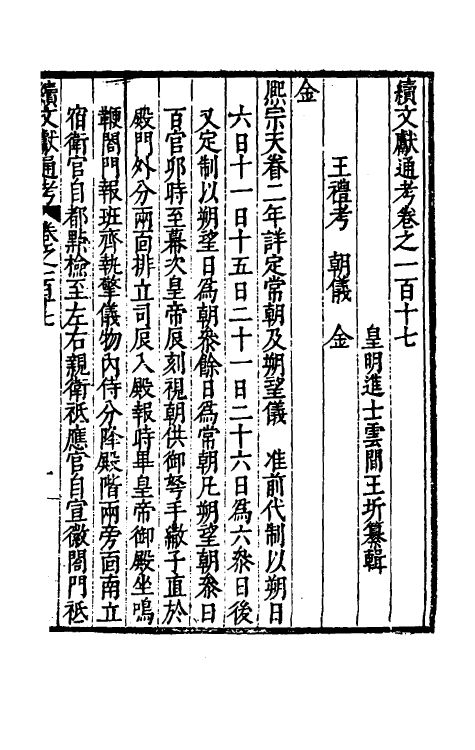 續文獻通考卷之一百十七
皇明進士雲間王圻纂輯
王禮考　朝儀　金
金
熙宗天眷二年詳定常朝及朔望儀　准前代制以朔日
六日十一日十五日二十一日二十六日爲六叅日後
又定制以朔望日爲朝叅餘日爲常朝凡朔望朝叅日
百官夘時至幕次皇帝辰刻視朝供御弩手繖子直於
殿門外分兩面排立司辰入殿報時畢皇帝御殿坐鳴
鞭閤門報班齊執擎儀物內侍分降殿階兩旁面南立
宿衛官自都點檢至左右親衛祇應官自宣徽閤門祇
續文獻通考　卷之一百十七　一